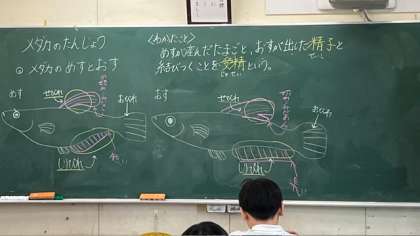 メダカのたんじょう
◎メダカのめすとおす
<わかったこと>
めすが産んだたまごと、おすが出した精子と
せいし
結びつくことを受精という。
じゅせい
めす
せびれ
おびれ
しりびれ
おす
せびれ
おびれ
しりびれ